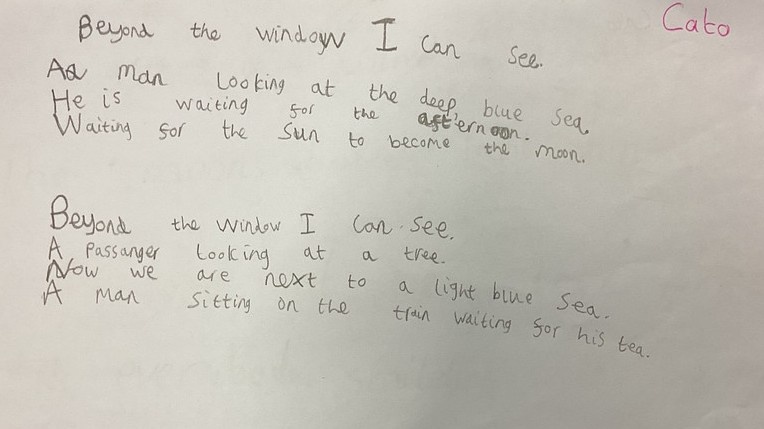 Cato
Beyond the window I can see.
Aa man looking at the deep, blue sea.
He is waiting for the afternoon.
Waiting for the sun to become the moon.
Beyond the window I can see.
A passanger looking at a tree.
Now we are next to a light blue sea.
A man sitting on the train waiting for his tea.